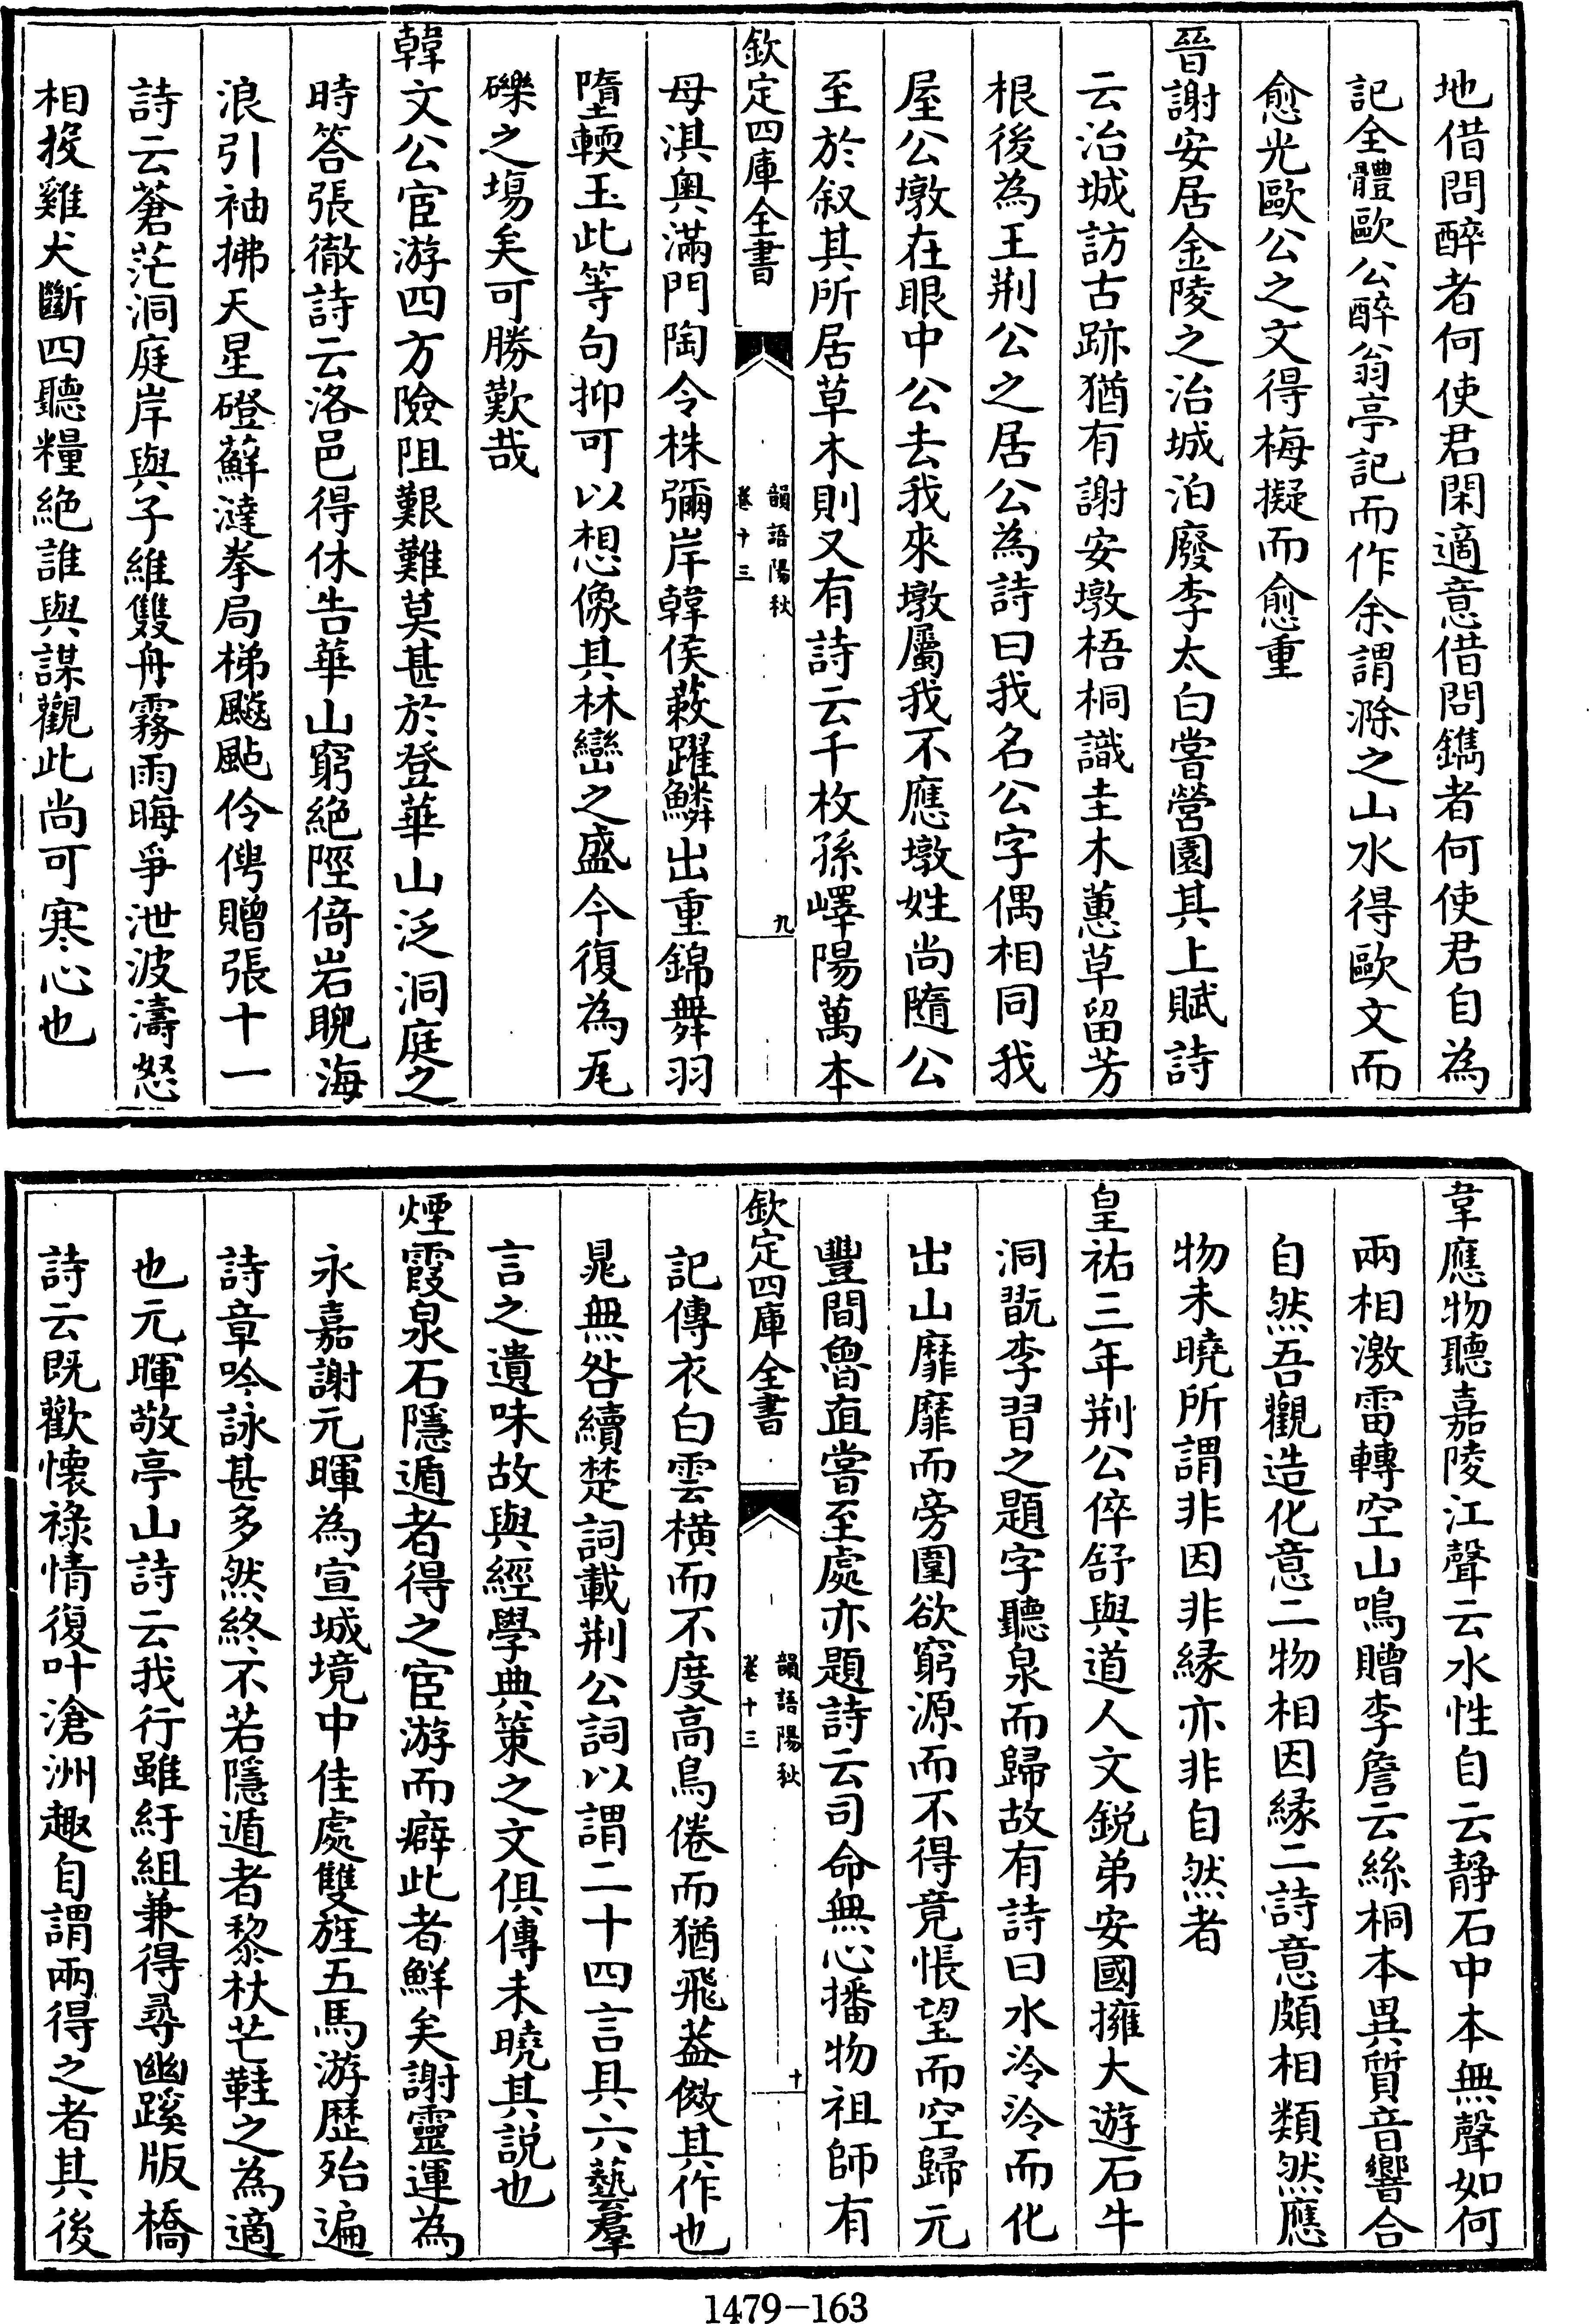 地借問醉者何使君閑適意借問鐫者何使君自為
記全體歐公醉翁亭記而作余謂滁之山水得歐文而
愈光歐公之文得梅擬而愈重
晉謝安居金陵之治城泊廢李太白嘗營園其上賦詩
云治城訪古跡猶有謝安墩梧桐識圭木蕙草留芳
根後為王荆公之居公為詩曰我名公字偶相同我
屋公墩在眼中公去我來墩屬我不應墩姓尚隨公
至於叙其所居草木則又有詩云千枚孫嶧陽萬本
欽定四庫全書
韻語陽秋
卷十三
九
母淇奥滿門陶令株彌岸韓侯蔌躍鱗出重錦舞羽
墮輭玉此等句抑可以想像其林巒之盛今復為瓦
礫之場矣可勝歎哉
韓文公宦游四方險阻艱難莫甚於登華山泛洞庭之
時答張徹詩云洛邑得休告華山窮絶陘倚岩睨海
浪引袖拂天星磴蘚澾拳局梯飈颭伶俜贈張十一
詩云蒼茫洞庭岸與子維雙舟霧雨晦爭泄波濤怒
相投雞犬斷四聽糧絶誰與謀觀此尚可寒心也
韋應物聽嘉陵江聲云水性自云靜石中本無聲如何
兩相激雷轉空山鳴贈李詹云絲桐本異質音響合
自然吾觀造化意二物相因緣二詩意頗相類然應
物未曉所謂非因非緣亦非自然者
皇祐三年荆公倅舒與道人文銳弟安國擁大遊石牛
洞翫李習之題字聽泉而歸故有詩曰水泠泠而化
出山靡靡而旁圍欲窮源而不得竟悵望而空歸元
豐間魯直嘗至處亦題詩云司命無心播物祖師有
欽定四庫全書
韻語陽秋
卷十三
十
記傳衣白雲橫而不度高鳥倦而猶飛葢倣其作也
晁無咎續楚詞載荆公詞以謂二十四言具六藝羣
言之遺味故與經學典策之文俱傳未曉其説也
煙霞泉石隱遁者得之宦游而癖此者鮮矣謝靈運為
永嘉謝元暉為宣城境中佳處雙旌五馬游歷殆遍
詩章吟詠甚多然終不若隱遁者黎杖芒鞋之為適
也元暉敬亭山詩云我行雖紆組兼得尋幽蹊版橋
詩云既歡懷祿情復叶滄洲趣自謂兩得之者其後
1479-163